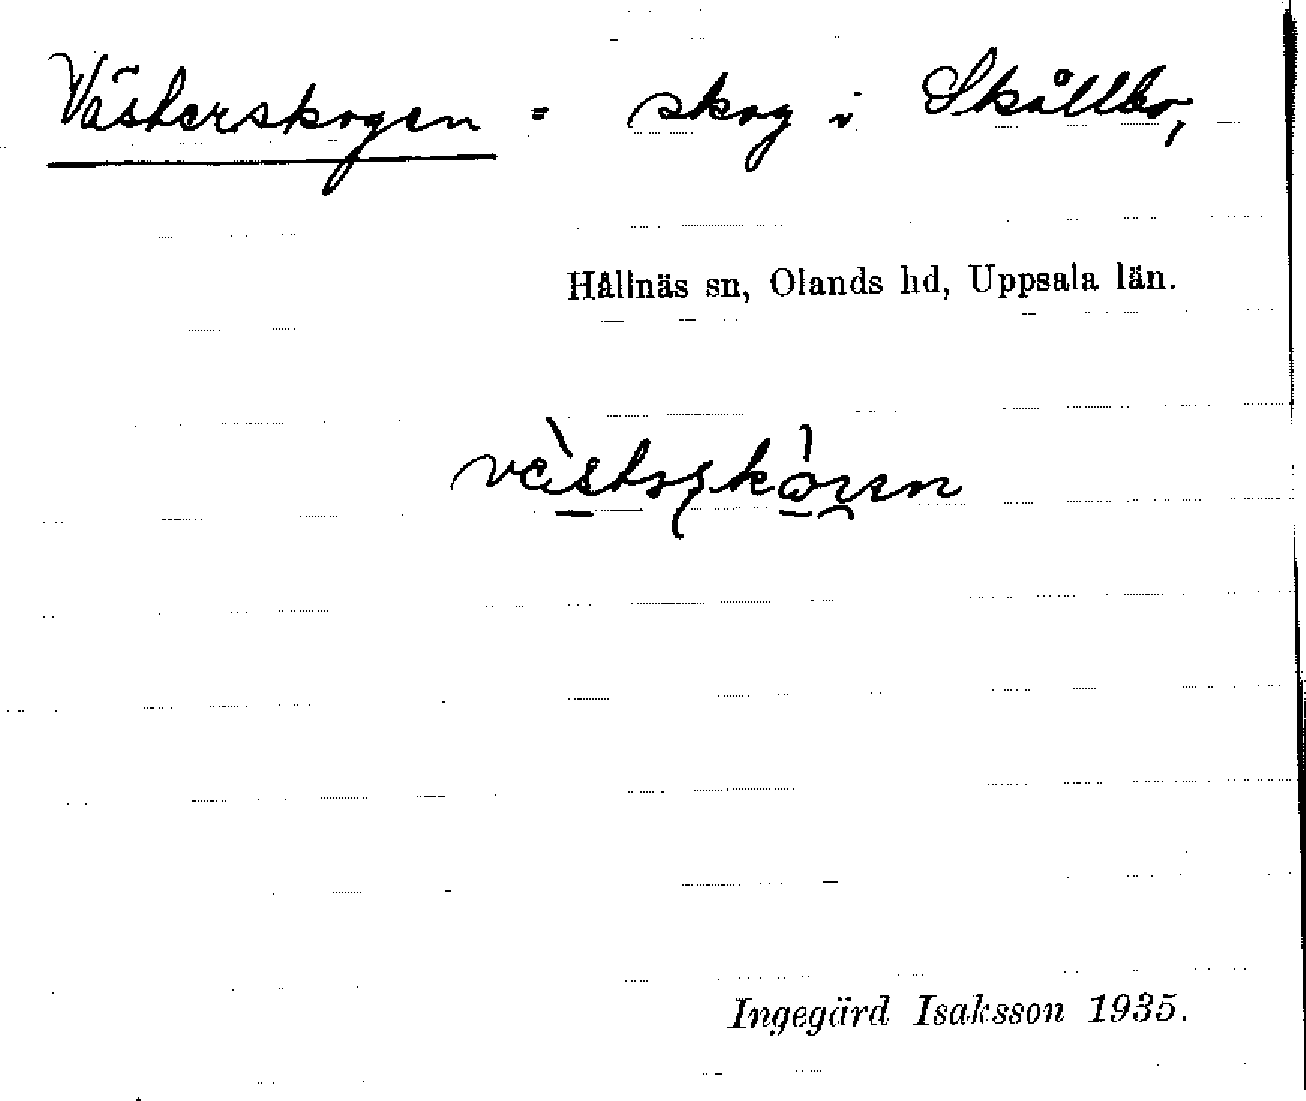 Västerskogen = skog i Skållbo,
Hållnäs sn, Olands hd, Uppsala län.
Ingegärd Isaksson 1935.